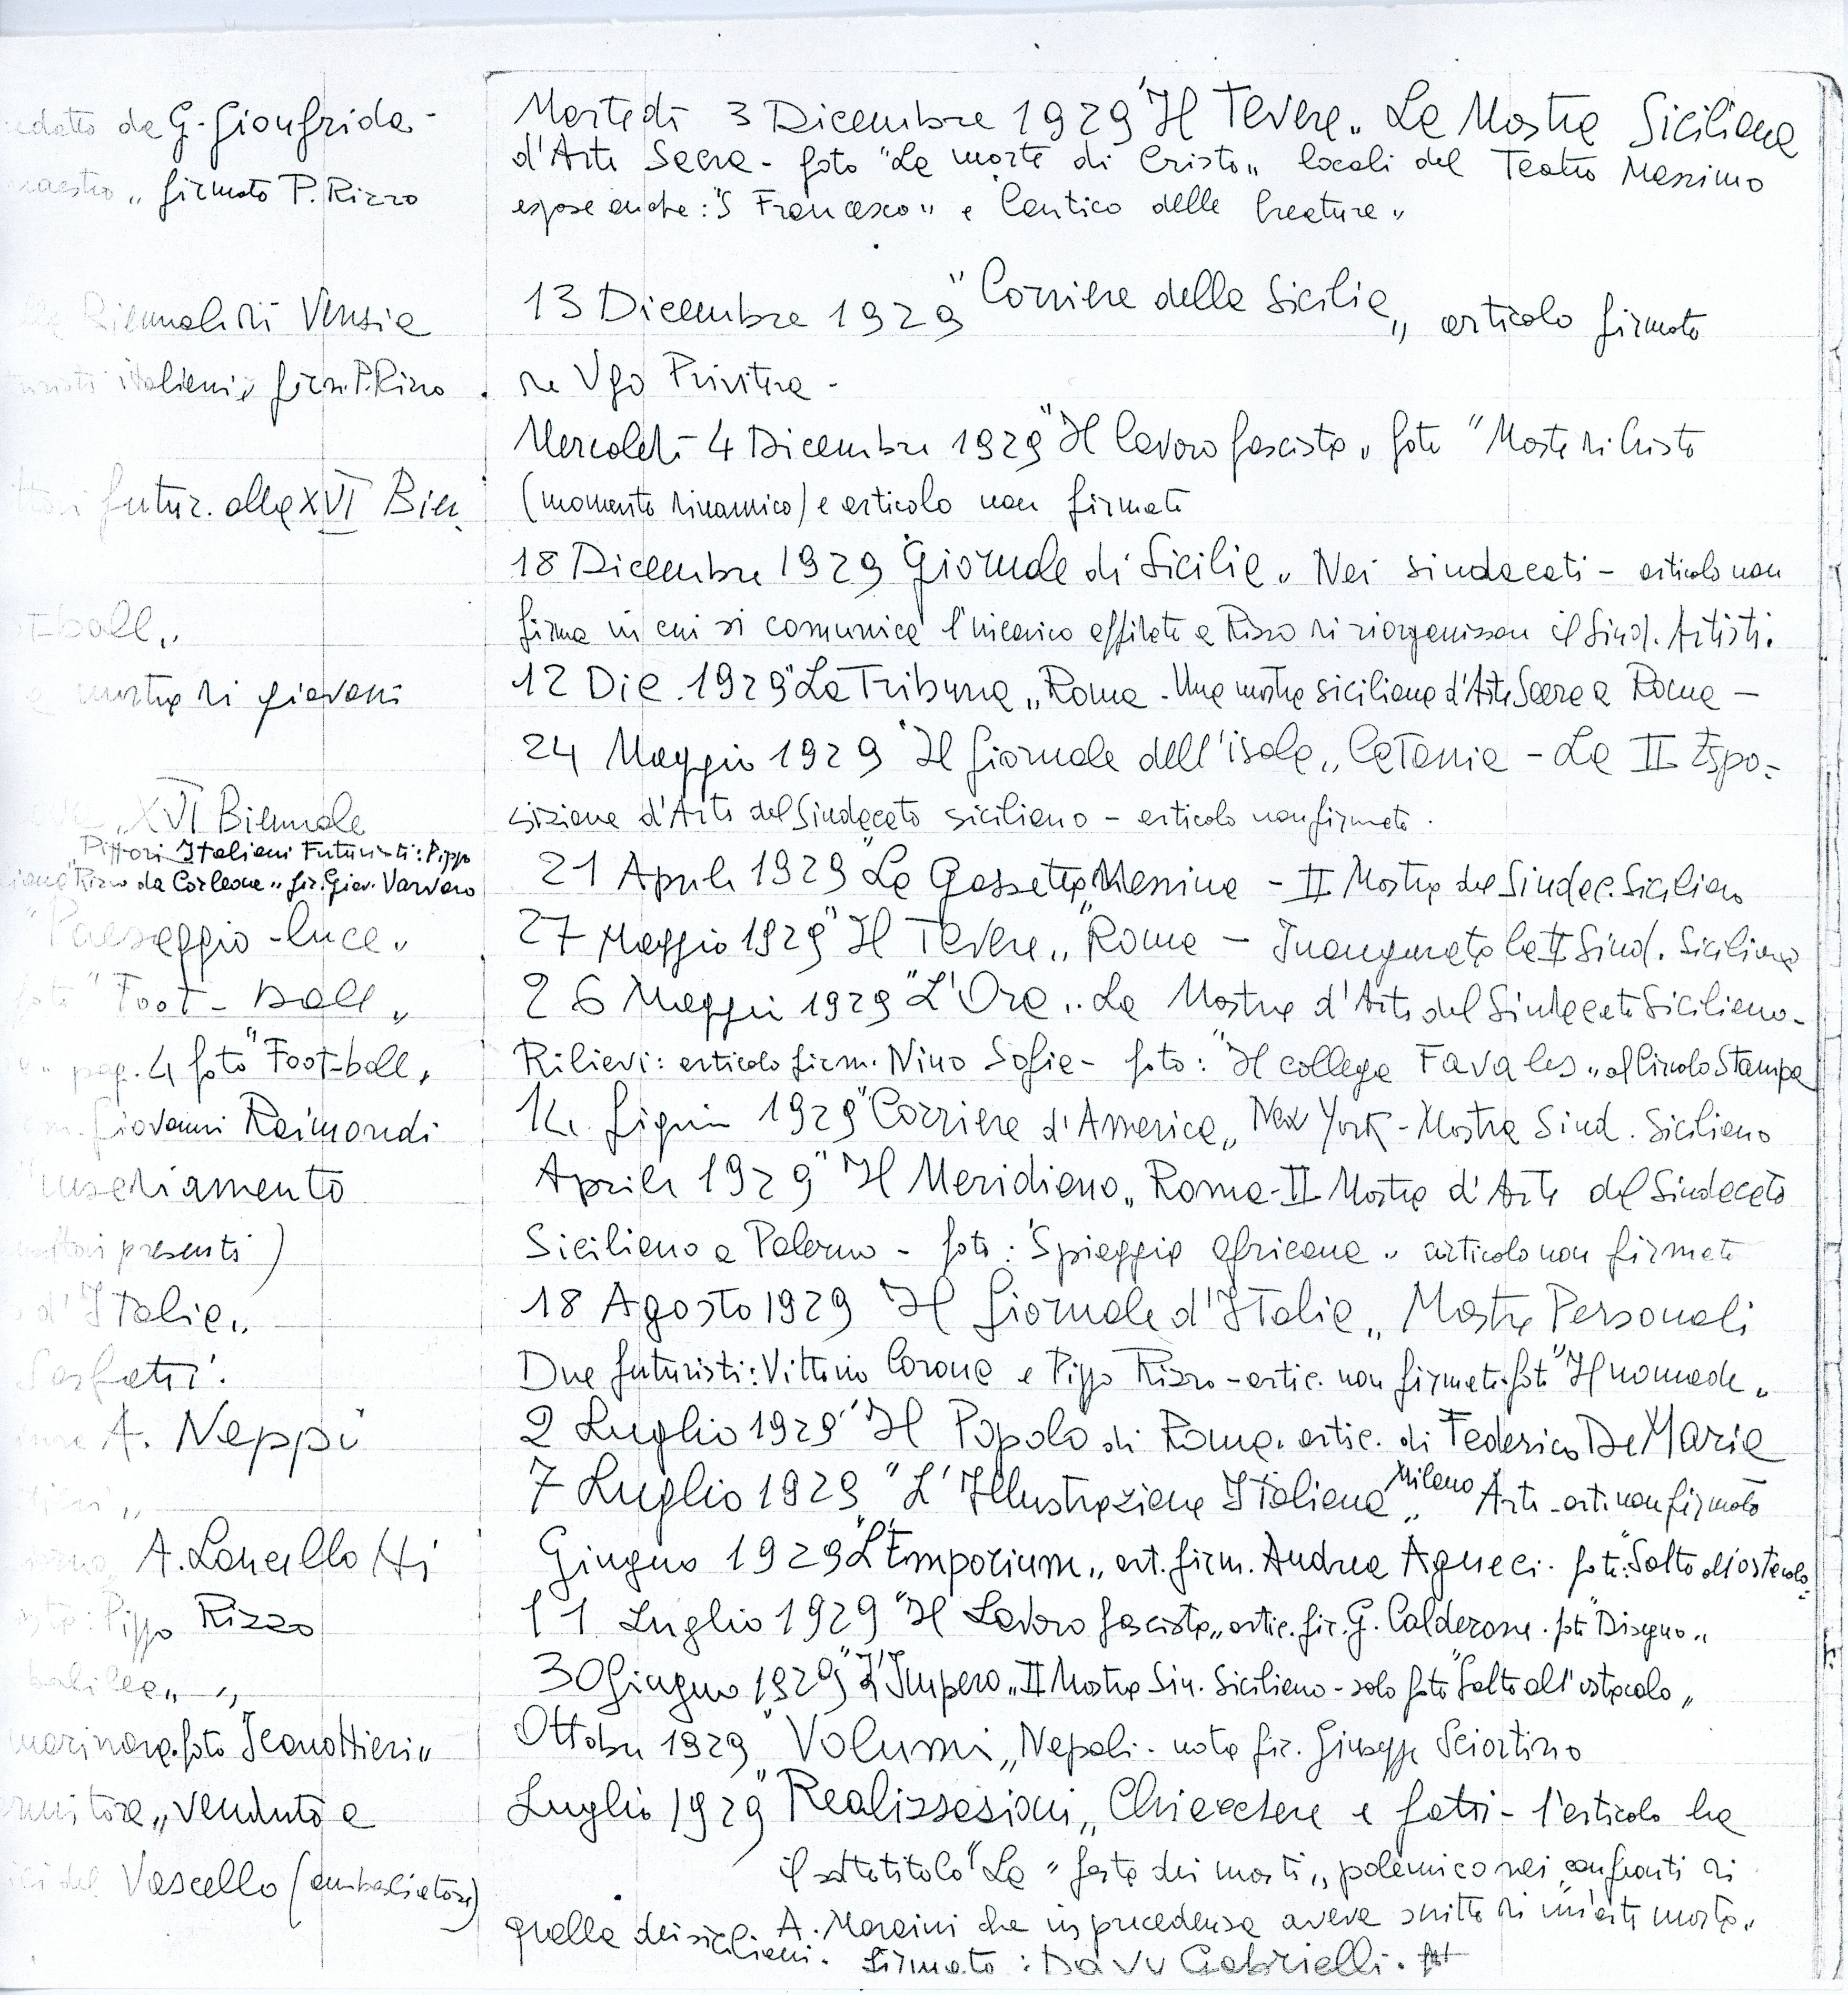 da G. Gionfrida -
firmato P. Rizzo
Biennale di Venezia
italiani" firm. P. Rizzo
futur. alla XVI Bien.
ball"
mostra di giovani
XVI Biennale
"Pittori Italiani Futuristi: Pippo
Rizzo da Corleone" fir. Giov. Varvaro
"Paesaggio-luce"
"Foot-Ball"
pag. 4 foto "Foot-ball"
Giovanni Raimondi
presenti)
d'Italia"
Sarfatti.
A. Neppi
A. Lancellotti
Pippo Rizzo
foto "Canottieri"
venduto a
del Vascello
Martedì 3 Dicembre 1929 "Il Tevere" La Mostra Siciliana
d'Arte Sacra - foto "La morte di Cristo" locali del Teatro Massimo
espose anche: "S Francesco" e Cantico delle Creature"
13 Dicembre 1929 "Corriere della Sicilia" articolo firmato
da Ugo Privitera -
Mercoledì 4 Dicembre 1929 "Il lavoro fascista" foto "Morte di Cristo
(momento dinamico) e articolo non firmato
18 Dicembre 1929 "Giornale di Sicilia" Nei sindacati - articolo non
firma in cui si comunica l'incarico affidato a Rizzo di riorganizzare il Sind. Artisti.
12 Dic. 1929 "La Tribuna" Roma - Una mostra siciliana d'Arte Sacra a Roma -
24 Maggio 1929 "Il Giornale dell'isola" Catania - La II Espo=
sizione d'Arte del Sindacato siciliano - articolo non firmato.
21 Aprile 1929 "La Gazzetta" Messina - II Mostra del Sindac. Siciliano
27 Maggio 1929 "Il Tevere" Roma - Inaugurata la II Sind. Siciliana
26 Maggio 1929 "L'Ora" La Mostra d'Arte del Sindacato Siciliano -
Rilievi: articolo firm. Nino Sofia - foto: "Il collega Favales" al Circolo Stampa
Giugno 1929 "Corriere d'America" New York - Mostra Sind. Siciliano
Aprile 1929 "Il Meridiano" Roma - II Mostra d'Arte del Sindacato
Siciliano a Palermo - foto: "Spiaggia africana" articolo non firmato
18 Agosto 1929 Il Giornale d'Italia" Mostre Personali
Due futuristi: Vittorio Corona e Pippo Rizzo - artic. non firmato. foto "Il nomade"
2 Luglio 1929 "Il Popolo di Roma. artic. di Federico De Maria
7 Luglio 1929 "L'Illustrazione Italiana" Milano Arte - art. non firmato
Giugno 1929 "L'Emporium" art. firm. Andrea Agueci. foto: "Salto all'ostacolo"
11 Luglio 1929 "Il Lavoro fascista" artic. fir. G. Calderone. foto "Disegno"
30 Giugno 1929 "L'Impero" II Mostra Sin. Siciliano - solo foto "Salto all'ostacolo"
Ottobre 1929 "Volumi" Napoli - nota fir. Giuseppe Sciortino
Luglio 1929 "Realizzazioni" Chiacchere e fatti - l'articolo ha
il sottotitolo "La "festa dei morti" polemico nei confronti di
A. Maraini che in precedenza aveva scritto di un'arte morta"
quella dei siciliani. firmato: Gabrielli.